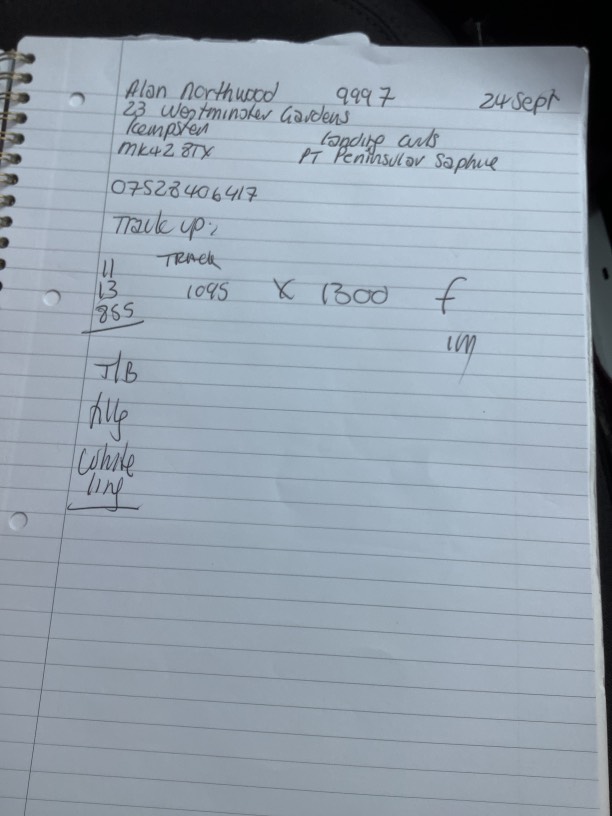 Alan Northwood 9997 24 Sept
23 Westminster Gardens
Kempston Landing
MK42 8TX PT Peninsular Saphire
07528406417
Track up:
11 TRACK
13 1095 X 1300 f
855 1M
T/B
White